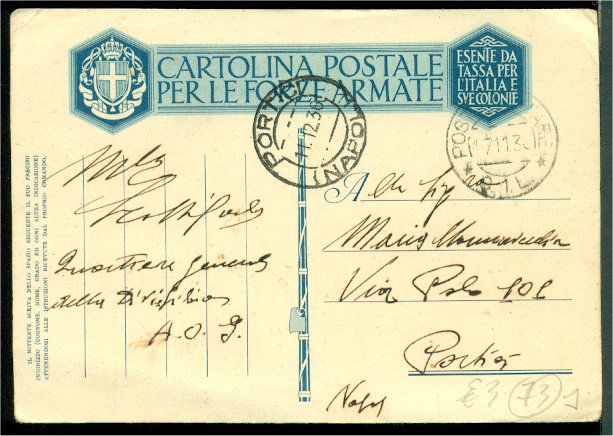 CARTOLINA POSTALE
PER LE FORZE ARMATE
ESENTE DA
TASSA PER
L'ITALIA E
SVE COLONIE
PORTICI (NAPOLI)
11.12.36
POSTA MILARE
S.I.L.
IL MITTENTE SCRIVA NELLO SPAZIO SEGUENTE IL SUO PRECISO
INDIRIZZO (COGNOME, NOME, GRADO ED OGNI ALTRA INDICAZIONE)
ATTENENDOSI ALLE ISTRUZIONI RICEVUTE DAL PROPRIO COMANDO.
Quartiere generale
della Div
A.O.I.
Alla Sig
Maria
Via Polo 101
Portici
Napoli
€3 73